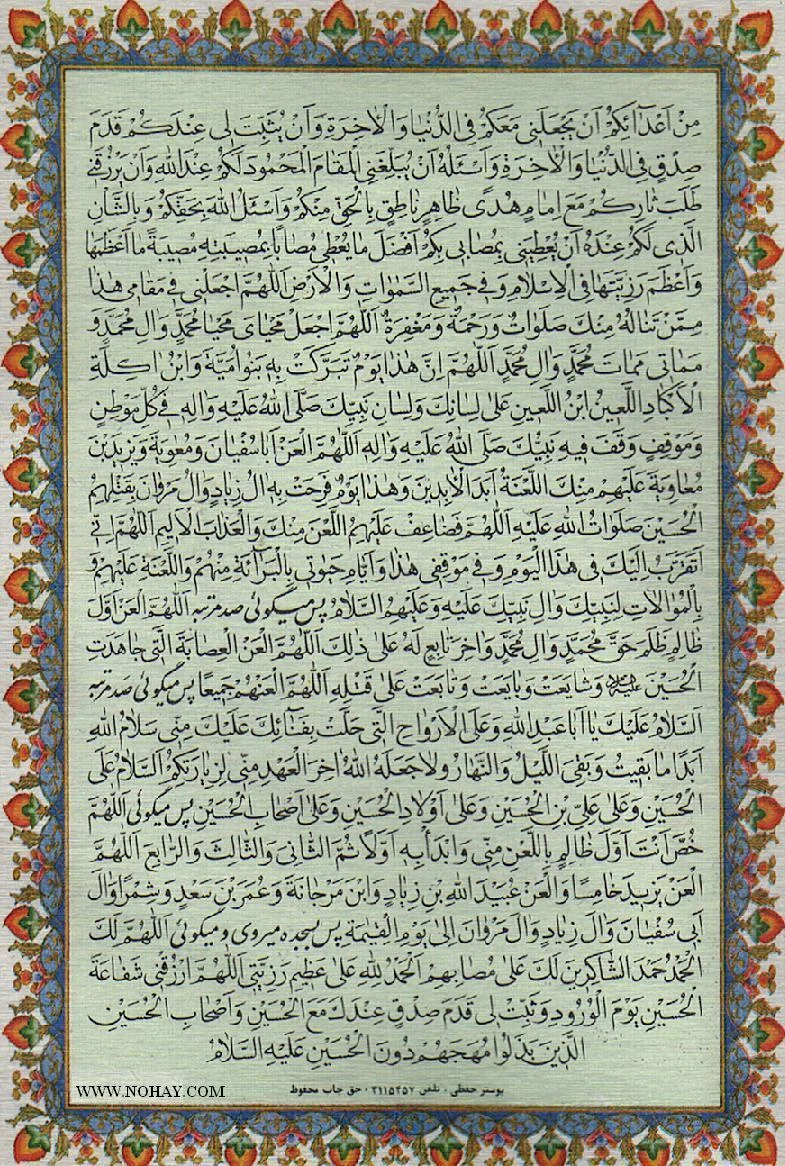 مِنْ اَعْدآئِكُمْ اَنْ يَجْعَلَنى مَعَكُمْ فِى الدُّنْيا وَالْاخِرَةِ وَاَنْ يُثَبِّتَ لى عِنْدَكُمْ قَدَمَ
صِدْقٍ فِى الدُّنْيا وَالْاخِرَةِ وَاَسْئَلُهُ اَنْ يُبَلِّغَنِى الْمَقامَ الْمَحْمُودَ لَكُمْ عِنْدَ اللهِ وَاَنْ يَرْزُقَنى
طَلَبَ ثارِكُمْ مَعَ اِمامِ هُدًى ظاهِرٍ ناطِقٍ بِالْحَقِّ مِنْكُمْ وَاَسْئَلُ اللهَ بِحَقِّكُمْ وَبِالشَّاْنِ
الَّذى لَكُمْ عِنْدَهُ اَنْ يُعْطِيَنى بِمُصابى بِكُمْ اَفْضَلَ ما يُعْطى مُصابًا بِمُصيبَتِهِ مُصيبَةً ما اَعْظَمَها
وَاَعْظَمَ رَزِيَّتَها فِى الْاِسْلامِ وَفى جَميعِ السَّمٰواتِ وَالْاَرْضِ اَللّهُمَّ اجْعَلْنى فى مَقامى هٰذا
مِمَّنْ تَنالُهُ مِنْكَ صَلَواتٌ وَرَحْمَةٌ وَمَغْفِرَةٌ اَللّهُمَّ اجْعَلْ مَحْياىَ مَحْيا مُحَمَّدٍ وَالِ مُحَمَّدٍ وَ
مَماتى مَماتَ مُحَمَّدٍ وَالِ مُحَمَّدٍ اَللّهُمَّ اِنَّ هٰذا يَوْمٌ تَبَرَّكَتْ بِهِ بَنُو اُمَيَّةَ وَابْنُ اكِلَةِ
الْاَكْبادِ اللَّعينُ ابْنُ اللَّعينِ عَلى لِسانِكَ وَلِسانِ نَبِيِّكَ صَلَّى اللهُ عَلَيْهِ وَالِهِ فى كُلِّ مَوْطِنٍ
وَمَوْقِفٍ وَقَفَ فيهِ نَبِيُّكَ صَلَّى اللهُ عَلَيْهِ وَالِهِ اَللّهُمَّ الْعَنْ اَبا سُفْيانَ وَمُعٰوِيَةَ وَيَزيدَ بْنَ
مُعاوِيَةَ عَلَيْهِمْ مِنْكَ اللَّعْنَةُ اَبَدَ الْابِدينَ وَهٰذا يَوْمٌ فَرِحَتْ بِهِ الُ زِيادٍ وَالُ مَرْوانَ بِقَتْلِهِمُ
الْحُسَيْنَ صَلَواتُ اللهِ عَلَيْهِ اَللّهُمَّ فَضاعِفْ عَلَيْهِمُ اللَّعْنَ مِنْكَ وَالْعَذابَ الْاَليمَ اَللّهُمَّ اِنّى
اَتَقَرَّبُ اِلَيْكَ فى هٰذَا الْيَوْمِ وَفى مَوْقِفى هٰذا وَاَيّامِ حَيٰوتى بِالْبَرآئَةِ مِنْهُمْ وَاللَّعْنَةِ عَلَيْهِمْ وَ
بِالْمُوالاتِ لِنَبِيِّكَ وَالِ نَبِيِّكَ عَلَيْهِ وَعَلَيْهِمُ السَّلامُ پس ميگوئى صد مرتبه اَللّهُمَّ الْعَنْ اَوَّلَ
ظالِمٍ ظَلَمَ حَقَّ مُحَمَّدٍ وَالِ مُحَمَّدٍ وَاخِرَ تابِعٍ لَهُ عَلى ذٰلِكَ اَللّهُمَّ الْعَنِ الْعِصابَةَ الَّتى جاهَدَتِ
الْحُسَيْنَ عليه السلام وَشايَعَتْ وَبايَعَتْ وَتابَعَتْ عَلى قَتْلِهِ اَللّهُمَّ الْعَنْهُمْ جَميعًا پس ميگوئى صد مرتبه
اَلسَّلامُ عَلَيْكَ يا اَبا عَبْدِ اللهِ وَعَلَى الْاَرْواحِ الَّتى حَلَّتْ بِفِنآئِكَ عَلَيْكَ مِنّى سَلامُ اللهِ
اَبَدًا ما بَقيتُ وَبَقِىَ اللَّيْلُ وَالنَّهارُ وَلا جَعَلَهُ اللهُ اخِرَ الْعَهْدِ مِنّى لِزِيارَتِكُمْ اَلسَّلامُ عَلَى
الْحُسَيْنِ وَعَلى عَلِىِّ بْنِ الْحُسَيْنِ وَعَلى اَوْلادِ الْحُسَيْنِ وَعَلى اَصْحابِ الْحُسَيْنِ پس ميگوئى اَللّهُمَّ
خُصَّ اَنْتَ اَوَّلَ ظالِمٍ بِاللَّعْنِ مِنّى وَابْدَأْ بِهِ اَوَّلًا ثُمَّ الثّانِىَ وَالثّالِثَ وَالرّابِعَ اَللّهُمَّ
الْعَنْ يَزيدَ خامِسًا وَالْعَنْ عُبَيْدَ اللهِ بْنَ زِيادٍ وَابْنَ مَرْجانَةَ وَعُمَرَ بْنَ سَعْدٍ وَشِمْرًا وَالَ
اَبى سُفْيانَ وَالَ زِيادٍ وَالَ مَرْوانَ اِلى يَوْمِ الْقِيٰمَةِ پس بسجده ميروى و ميگوئى اَللّهُمَّ لَكَ
الْحَمْدُ حَمْدَ الشّاكِرينَ لَكَ عَلى مُصابِهِمْ اَلْحَمْدُ لِلّهِ عَلى عَظيمِ رَزِيَّتى اَللّهُمَّ ارْزُقْنى شَفاعَةَ
الْحُسَيْنِ يَوْمَ الْوُرُودِ وَثَبِّتْ لى قَدَمَ صِدْقٍ عِنْدَكَ مَعَ الْحُسَيْنِ وَاَصْحابِ الْحُسَيْنِ
الَّذينَ بَذَلُوا مُهَجَهُمْ دُونَ الْحُسَيْنِ عَلَيْهِ السَّلامُ
پوستر حفظى ، تلفن ۳۱۱۵۲۵۷ ، حق چاپ محفوظ
WWW.NOHAY.COM